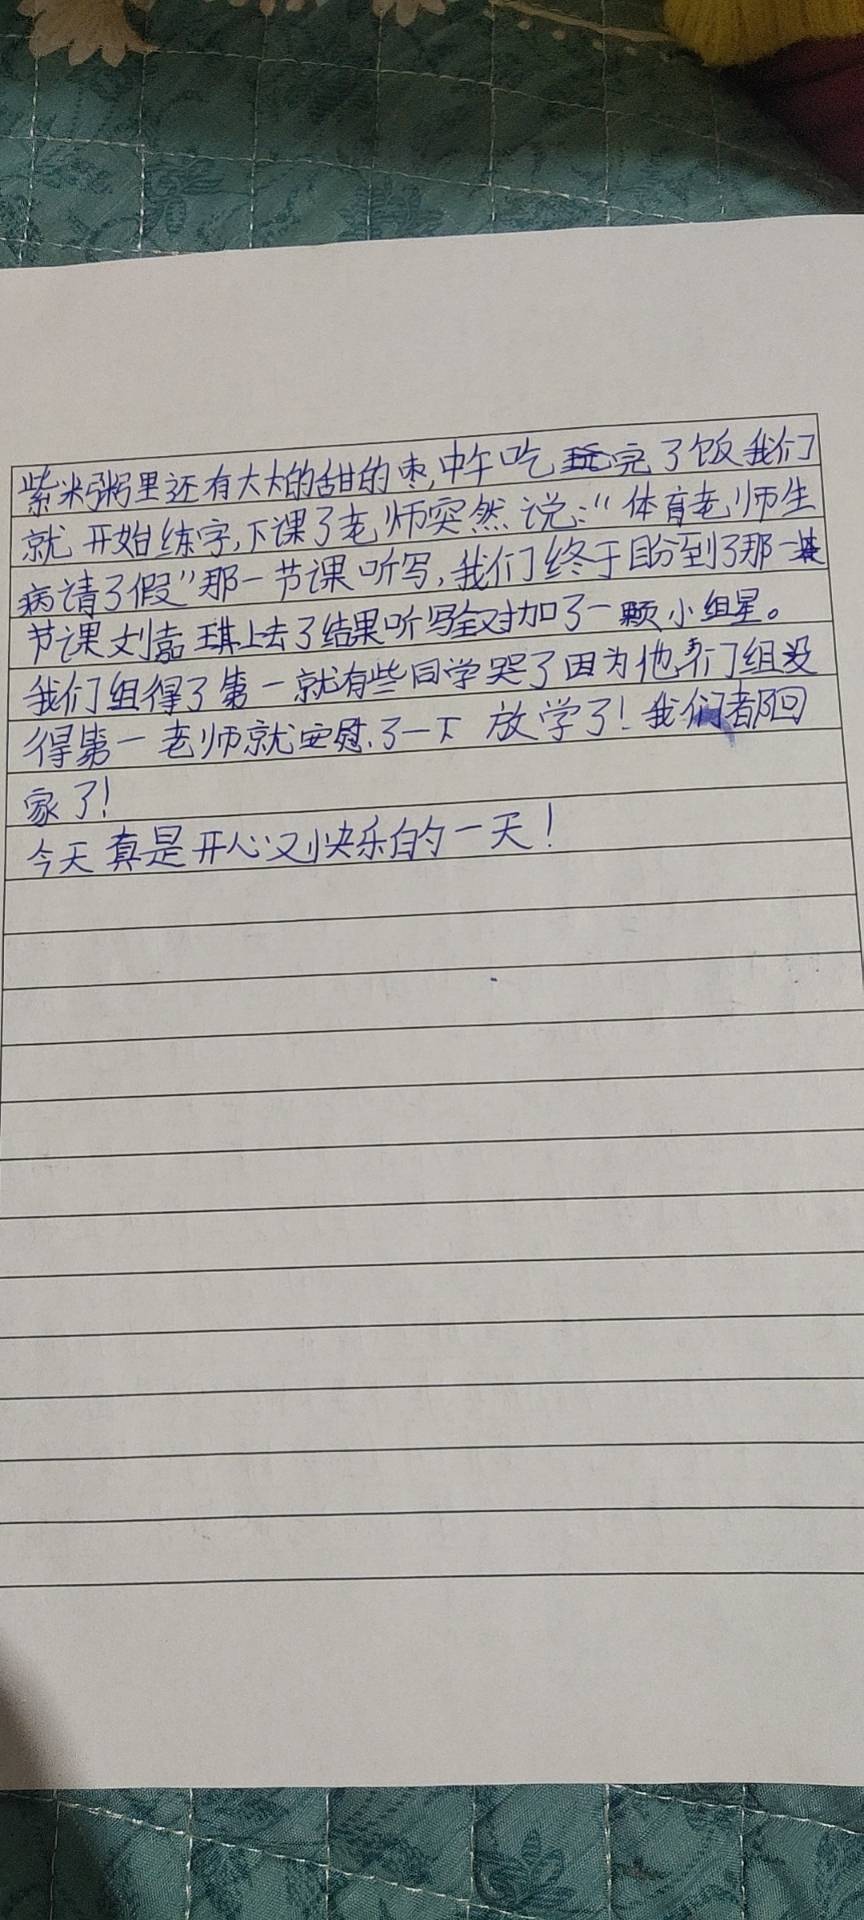 紫米粥里还有大大的甜的枣,中午吃完了饭我们
就开始练字,下课了老师突然说:“体育老师生
病请了假”那一节课听写,我们终于盼到了那一
节课刘嘉琪上去了结果听写全对加了一颗小组星。
我们组得了第一就有些同学哭了因为他们组没
得第一老师就安慰了一下 放学了!我们都回
家了!
今天真是开心又快乐的一天!